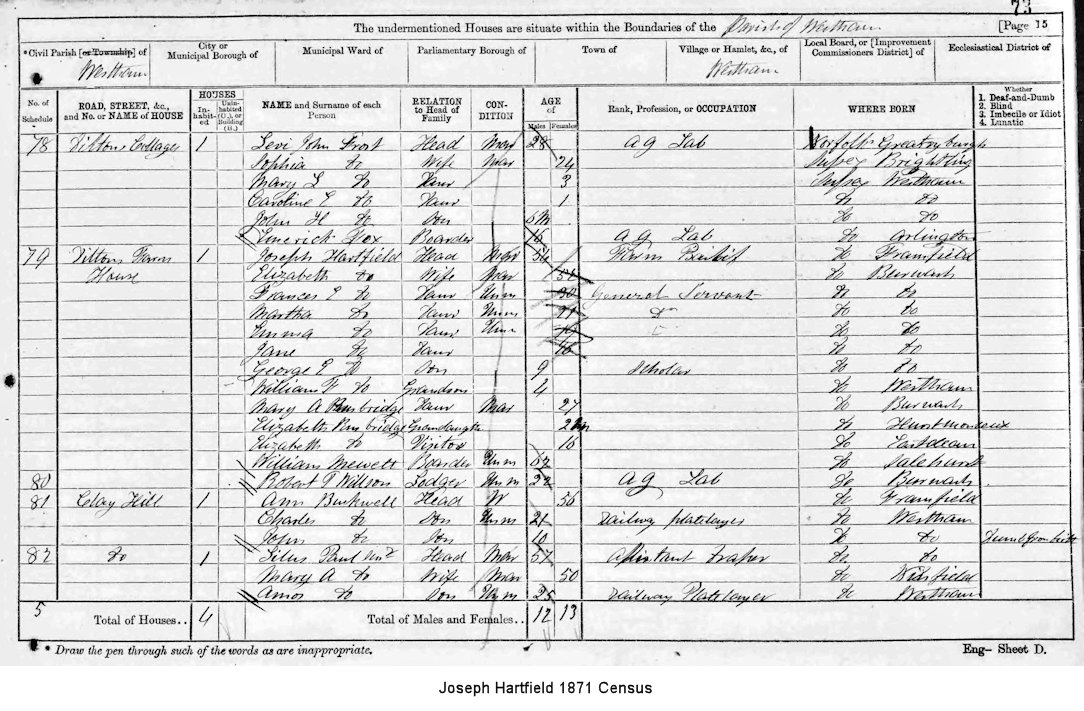 73
The undermentioned Houses are situate within the Boundaries of the Parish of Westham [Page 15
*Civil Parish [or Township] of Westham
City or Municipal Borough of
Municipal Ward of
Parliamentary Borough of
Town of
Village or Hamlet, &c., of Westham
Local Board, or [Improvement Commissioners District] of
Ecclesiastical District of
No. of Schedule
ROAD, STREET, &c., and No. or NAME of HOUSE
HOUSES
In-habit-ed
Unin-habited (U.), or Building (B.)
NAME and Surname of each Person
RELATION to Head of Family
CON-DITION
AGE of
Males Females
Rank, Profession, or OCCUPATION
WHERE BORN
Whether
1. Deaf-and-Dumb
2. Blind
3. Imbecile or Idiot
4. Lunatic
78 Cottages 1 Levi John Frost Head Mar 28 Ag Lab Norfolk
Sophia Do Wife Mar 24 Sussex Brightling
Mary Do Daur 3 Sussex Westham
Caroline E Do Daur 1 Do Do
John H Do Son 6m Do Do
Fox Boarder 16 Ag Lab Do Arlington
79 Farm House 1 Joseph Hartfield Head Mar 54 Farm Do Framfield
Elizabeth Do Wife Mar Do Burwash
Frances E Do Daur Unm 30 General Servant Do Do
Martha Do Daur Unm 21 Do Do Do
Emma Do Daur Unm 19 Do Do
Jane Do Daur 16 Do Do
George E Do Son 9 Scholar Do Do
William F Do Grandson 4 Do Westham
Mary A Daur Mar 27 Do Burwash
Elizabeth Grandaughter Do
Elizabeth Do Visitor 16 Do Eastdean
William Mewett Boarder Unm 62 Do Salehurst
80 Robert T Willson Lodger Unm 22 Ag Lab Do Burwash
81 Clay Hill 1 Ann Buckwell Head W 56 Do Framfield
Charles Do Son Unm 21 Railway platelayer Do Westham
John Do Son 10 Do Do
82 Do 1 Silus Paul Head Mar 57 Do Do
Mary A Do Wife Mar 50 Do
Amos Do Son Unm 25 Railway Platelayer Do Westham
5 Total of Houses.. 4 Total of Males and Females.. 12 13
* Draw the pen through such of the words as are inappropriate.
Eng- Sheet D.
Joseph Hartfield 1871 Census